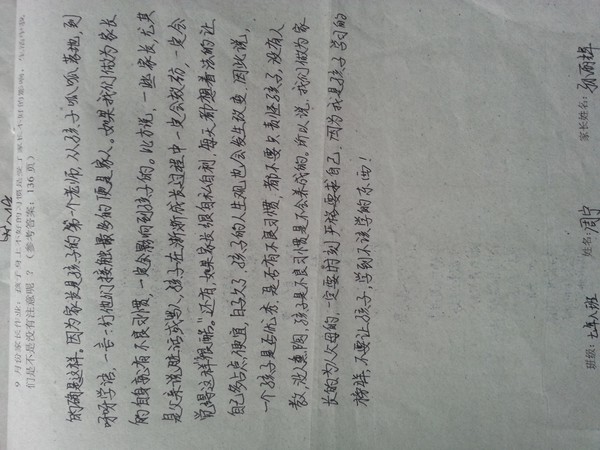 9 月份家长作业：孩子身上不好的习惯是受了家长不好的影响，生活中我
们是不是没有注意呢？（参考答案：136 页）
的确是这样。因为家长是孩子的第一个老师，从孩子呱呱落地，到
呀呀学语，一言一行他们接触最多的便是家人。如果我们做为家长
的自身就有不良习惯，一定会影响到孩子的。比方说，一些家长尤其
是父亲说脏话或骂人，孩子在渐渐成长过程中一定会效仿，一定会
觉得这样很酷。还有，如果家长很自私自利，每天都想着法的让
自己多占点便宜，日子久了，孩子的人生观也会发生改变。因此说，
一个孩子是否优秀，是否有不良习惯，都不要只责怪孩子，没有人
教，没人熏陶，孩子是不良习惯是不会养成的。所以说，我们做为家
长的为人父母的，一定要时刻严格要求自己，因为我是孩子学习的
榜样，不要让孩子，学到不该学的东西！
班级：七年八班 姓名：周宁 家长姓名：孙丽